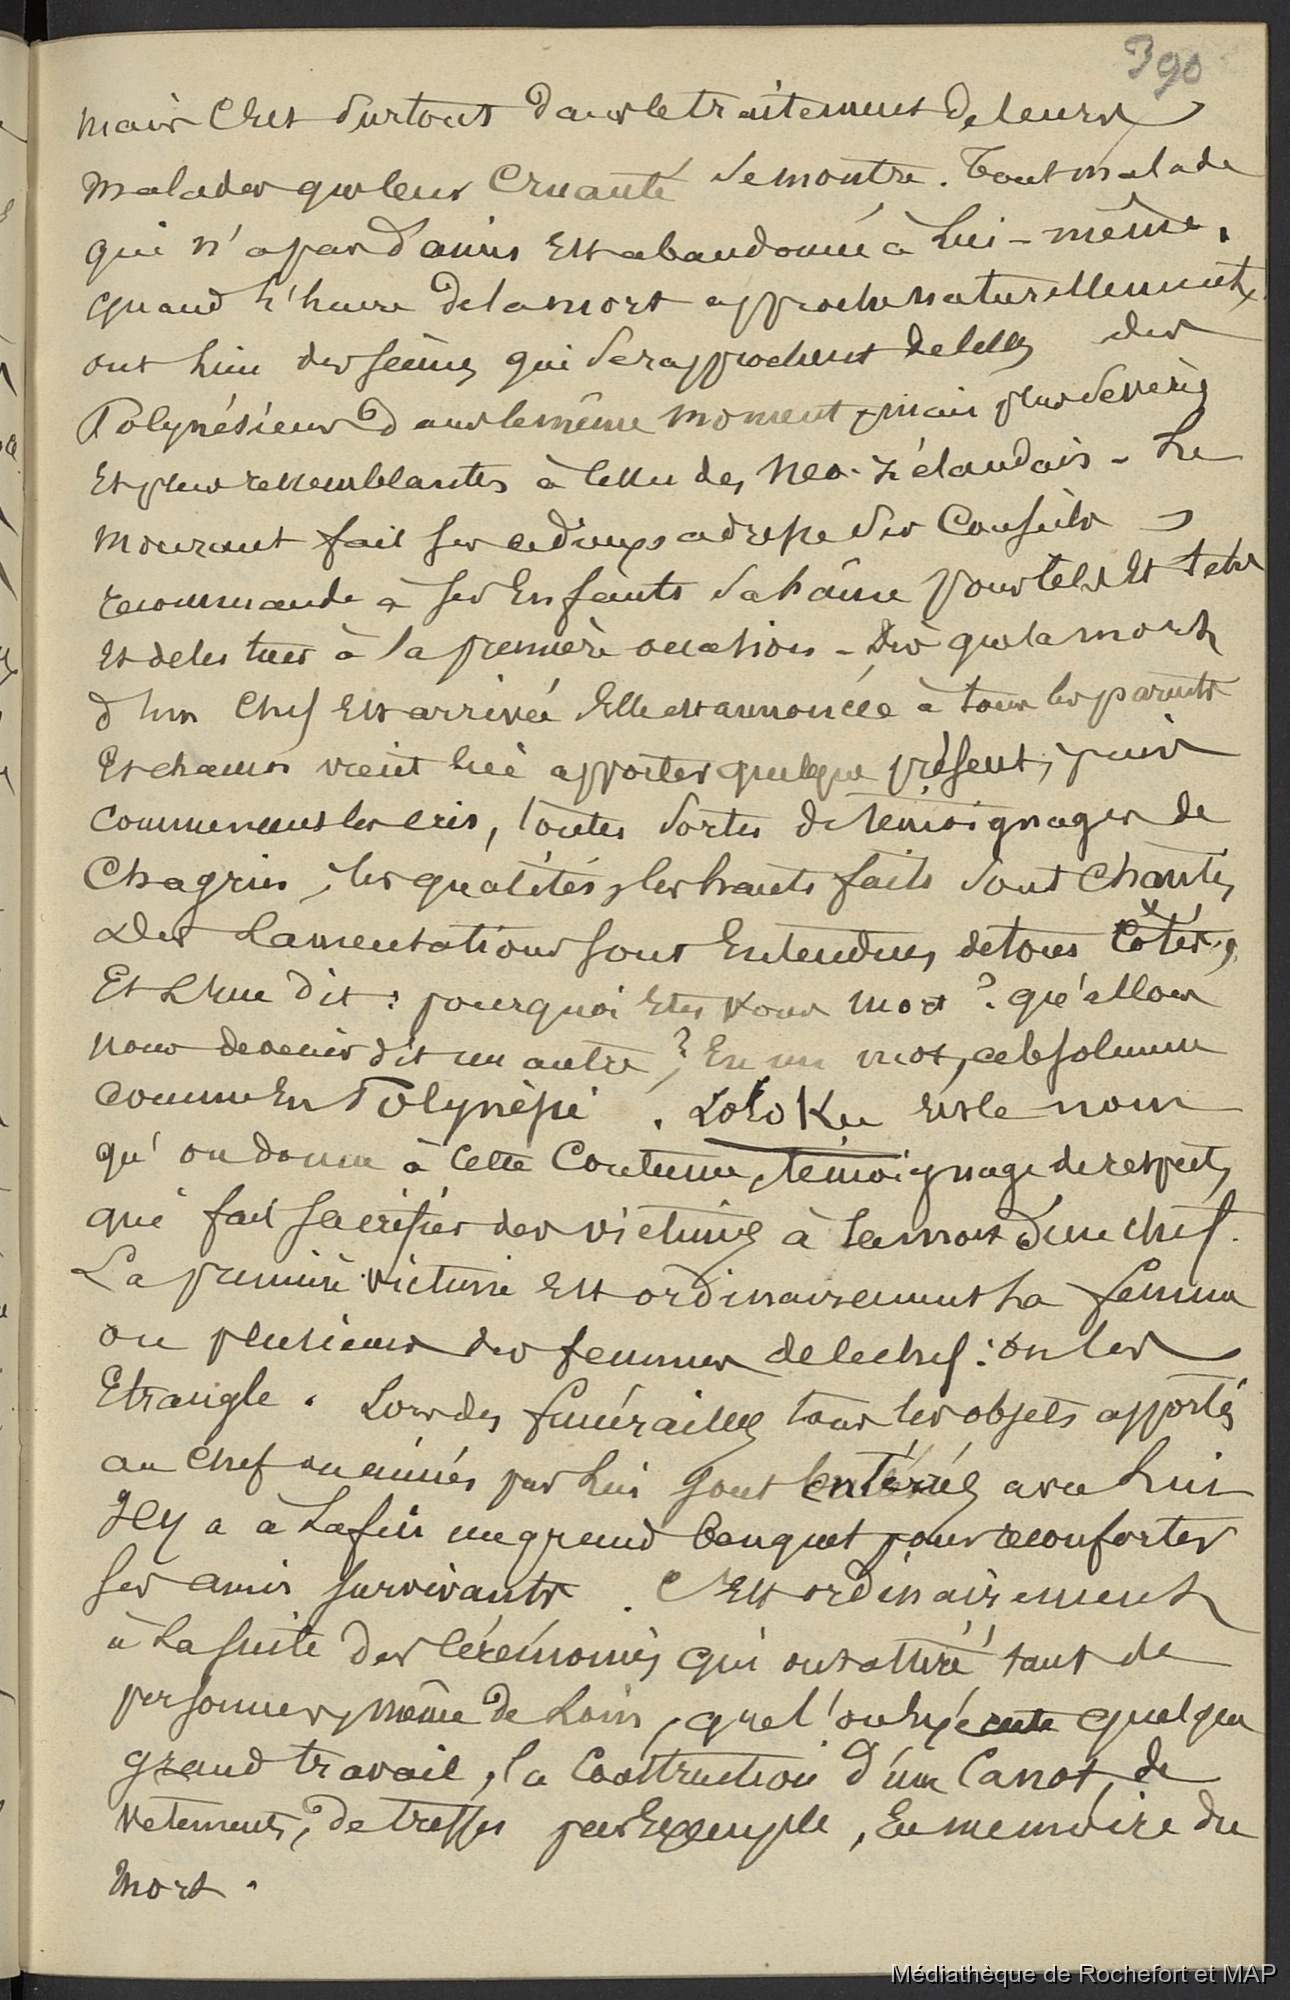 390
mais c'est surtout dans le traitement de leurs
malades que leur cruauté se montre. Tout malade
qui n'a pas d'amis est abandonné à lui-même.
quand l'heure de la mort approche naturellement,
ont lieu des scènes qui se rapprochent de celles des
Polynésiens dans le même moment, mais plus
et plus ressemblantes à celles des Néo-Zélandais - Le
mourant fait ses adieux, adresse des conseils
recommande à ses enfants sa haine pour tels et tels
et de les tuer à la première occasion - Dès que la mort
d'un chef est arrivée elle est annoncée à tous les parents
et chacun vient lui apporter quelque présent, puis
commencent les cris, toutes sortes de témoignages de
chagrin, les qualités, les hauts faits sont chantés,
des lamentations sont entendues de tous côtés,
et l'une dit : pourquoi êtes vous mort ? qu'allons
nous devenir dit un autre ? En un mot, absolument
comme en Polynésie. Loloku est le nom
qu'on donne à cette coutume, témoignage de respect,
qui fait sacrifier des victimes à la mort d'un chef.
La première victime est ordinairement la femme
ou plusieurs des femmes de le chef : on les
étrangle. Lors des funérailles tous les objets apportés
au chef ou aimés par lui sont enterrés avec lui
Il y a à la fin un grand banquet pour reconforter
ses amis survivants. C'est ordinairement
à la suite des cérémonies qui ont attiré tant de
personnes, même de loin, que l'on exécute quelque
grand travail, la construction d'un canot, de
vetements, de tresses par exemple, en memoire du
mort.
Médiathèque de Rochefort et MAP